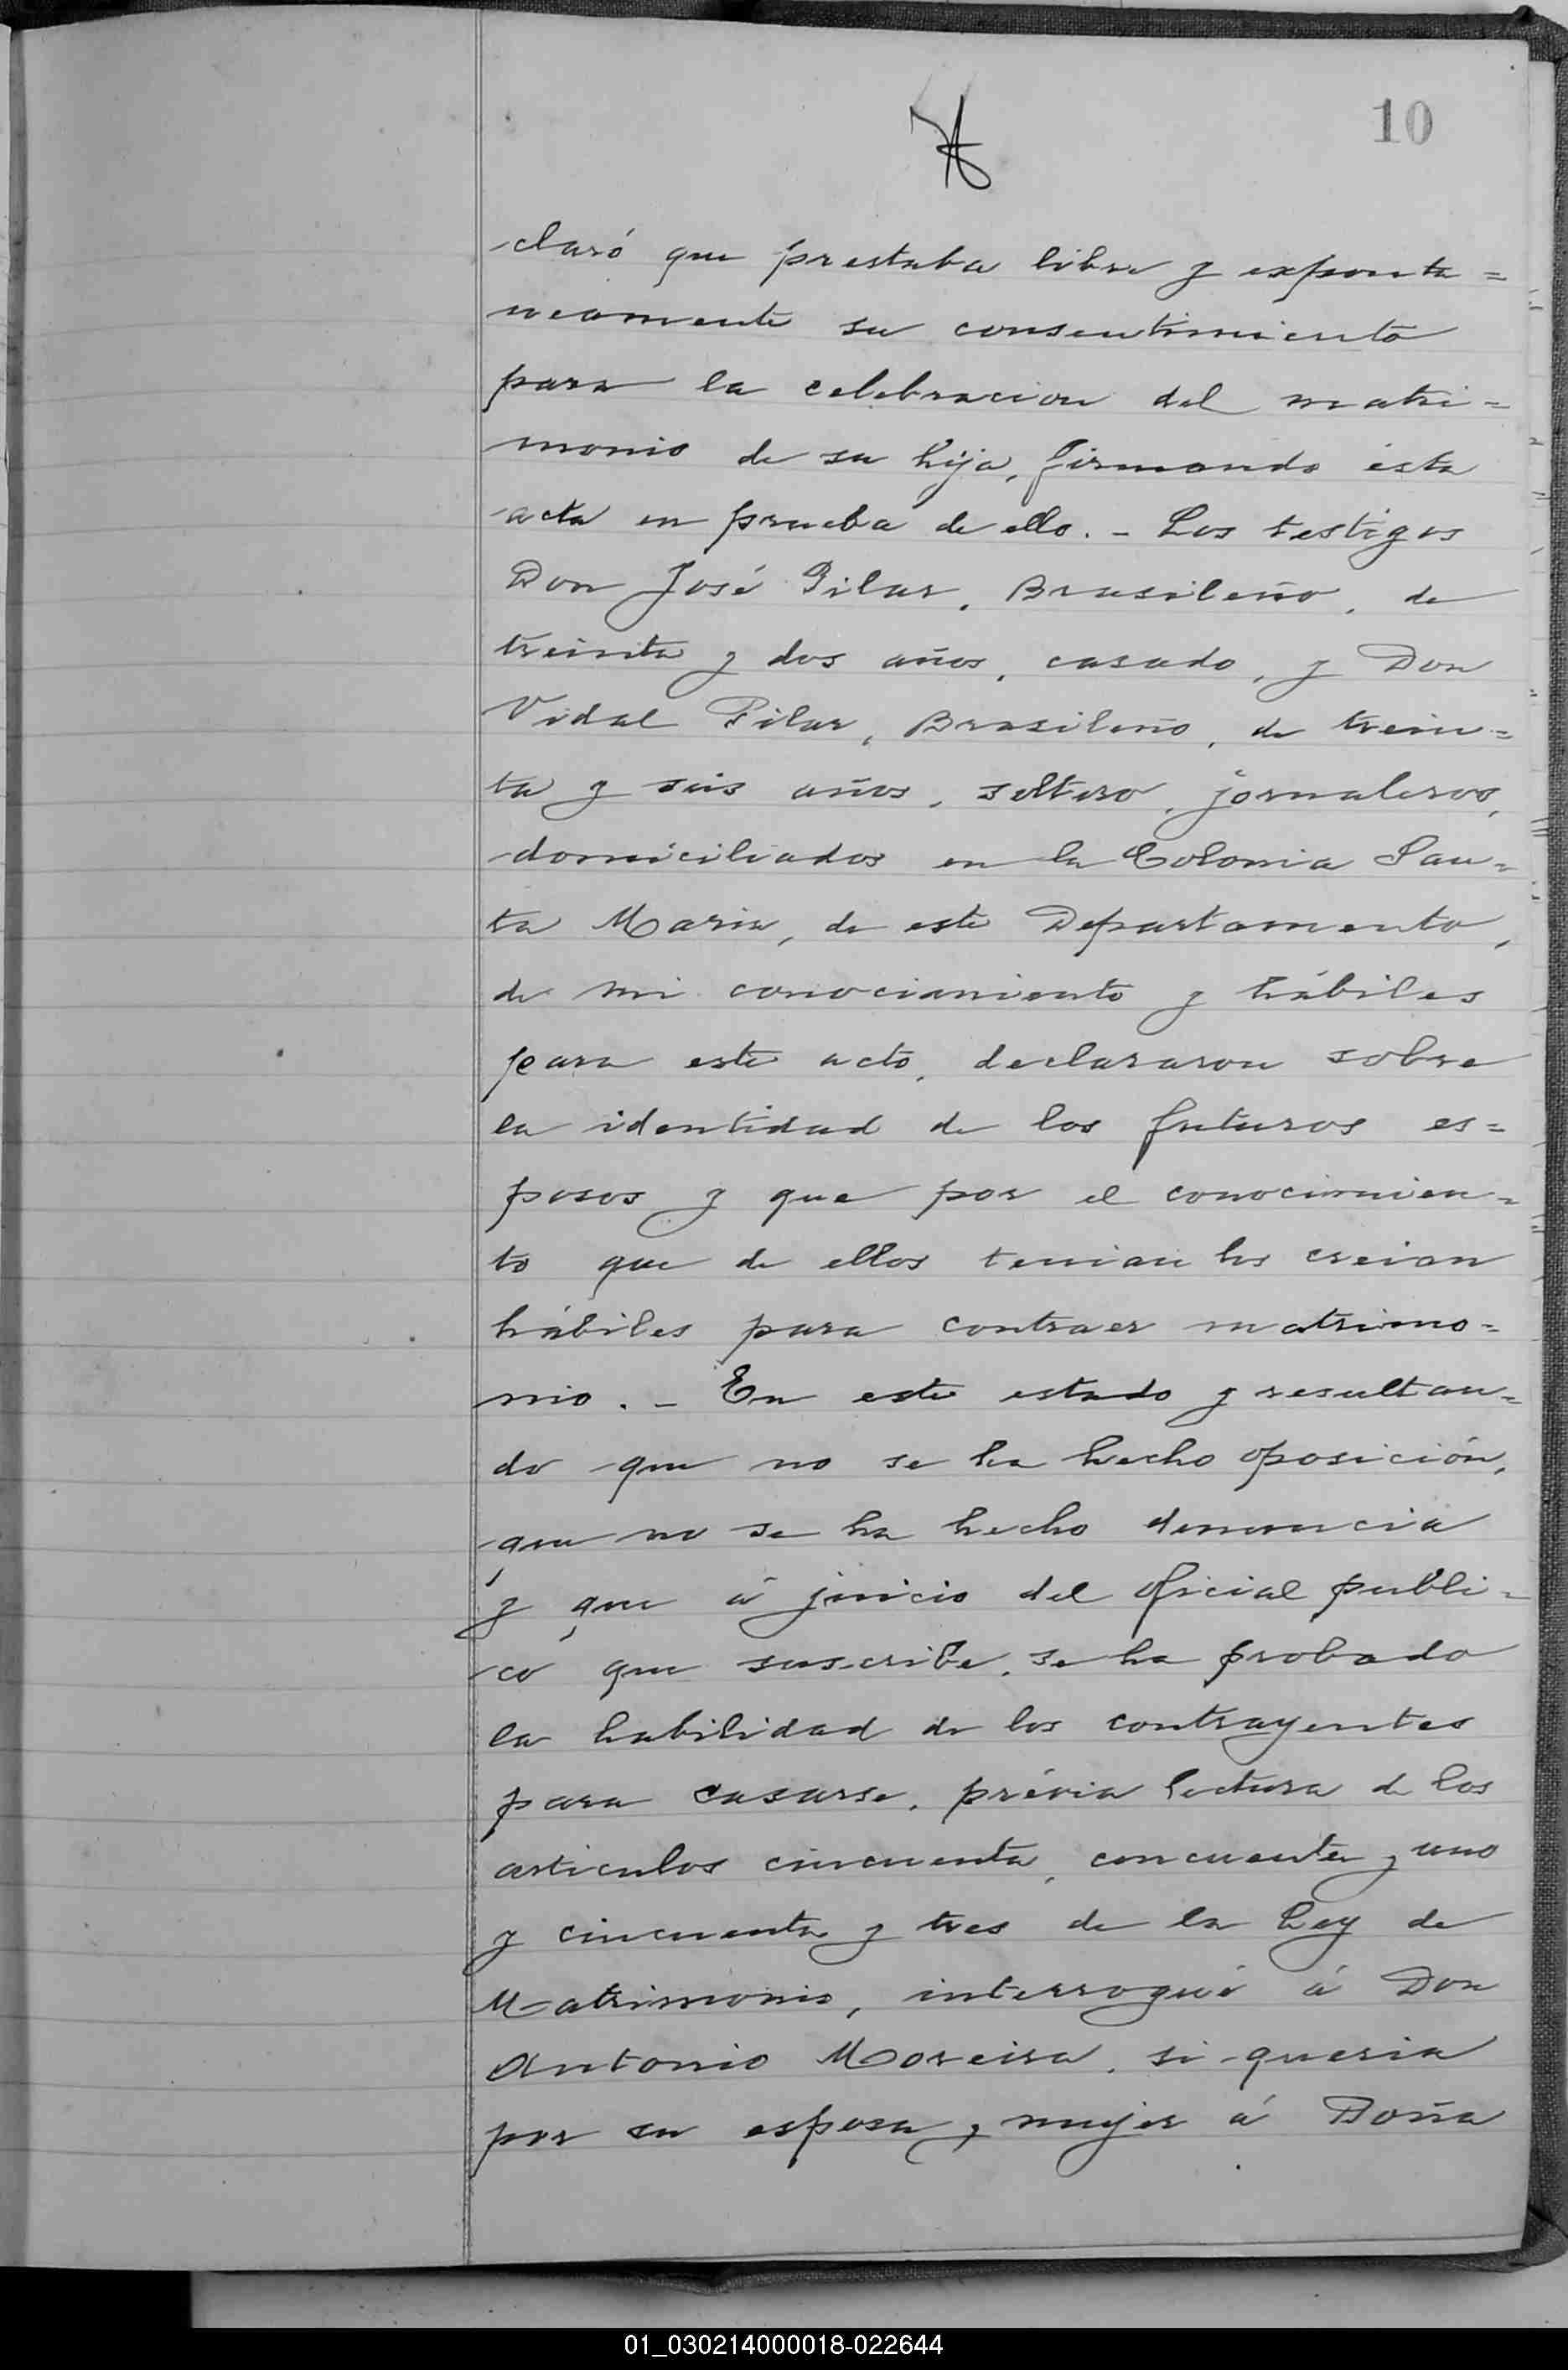 10
claró que prestaba libre y exponta=
neamente su consentimiento
para la celebracion del matri=
monio de su hija, firmando ésta
acta en prueba de ello. - Los testigos
Don José Pilar, Brasileño, de
treinta y dos años, casado, y Don
Vidal Pilar, Brasileño, de trein=
ta y seis años, soltero, jornaleros,
domiciliados en la Colonia San=
ta Maria, de este Departamento,
de mi conocimiento y hábiles
para este acto, declararon sobre
la identidad de los futuros es=
posos y que por el conocimien=
to que de ellos tenian los creian
hábiles para contraer matrimo=
nio. - En este estado y resultan=
do que no se ha hecho oposición,
que no se ha hecho denuncia
y que á juicio del oficial públi=
co que suscribe, se ha probado
la habilidad de los contrayentes
para casarse, prévia lectura de los
articulos cincuenta, concuenta y uno
y cincuenta y tres de la Ley de
Matrimonio, interrogué á Don
Antonio Moreira, si queria
por su esposa y mujer á Doña
01_030214000018-022644